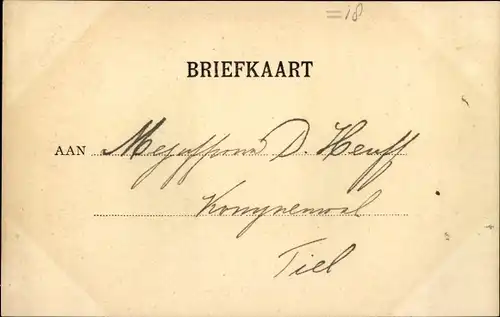 =18
BRIEFKAART
AAN Mejuffrouw D. Heuff
Tiel